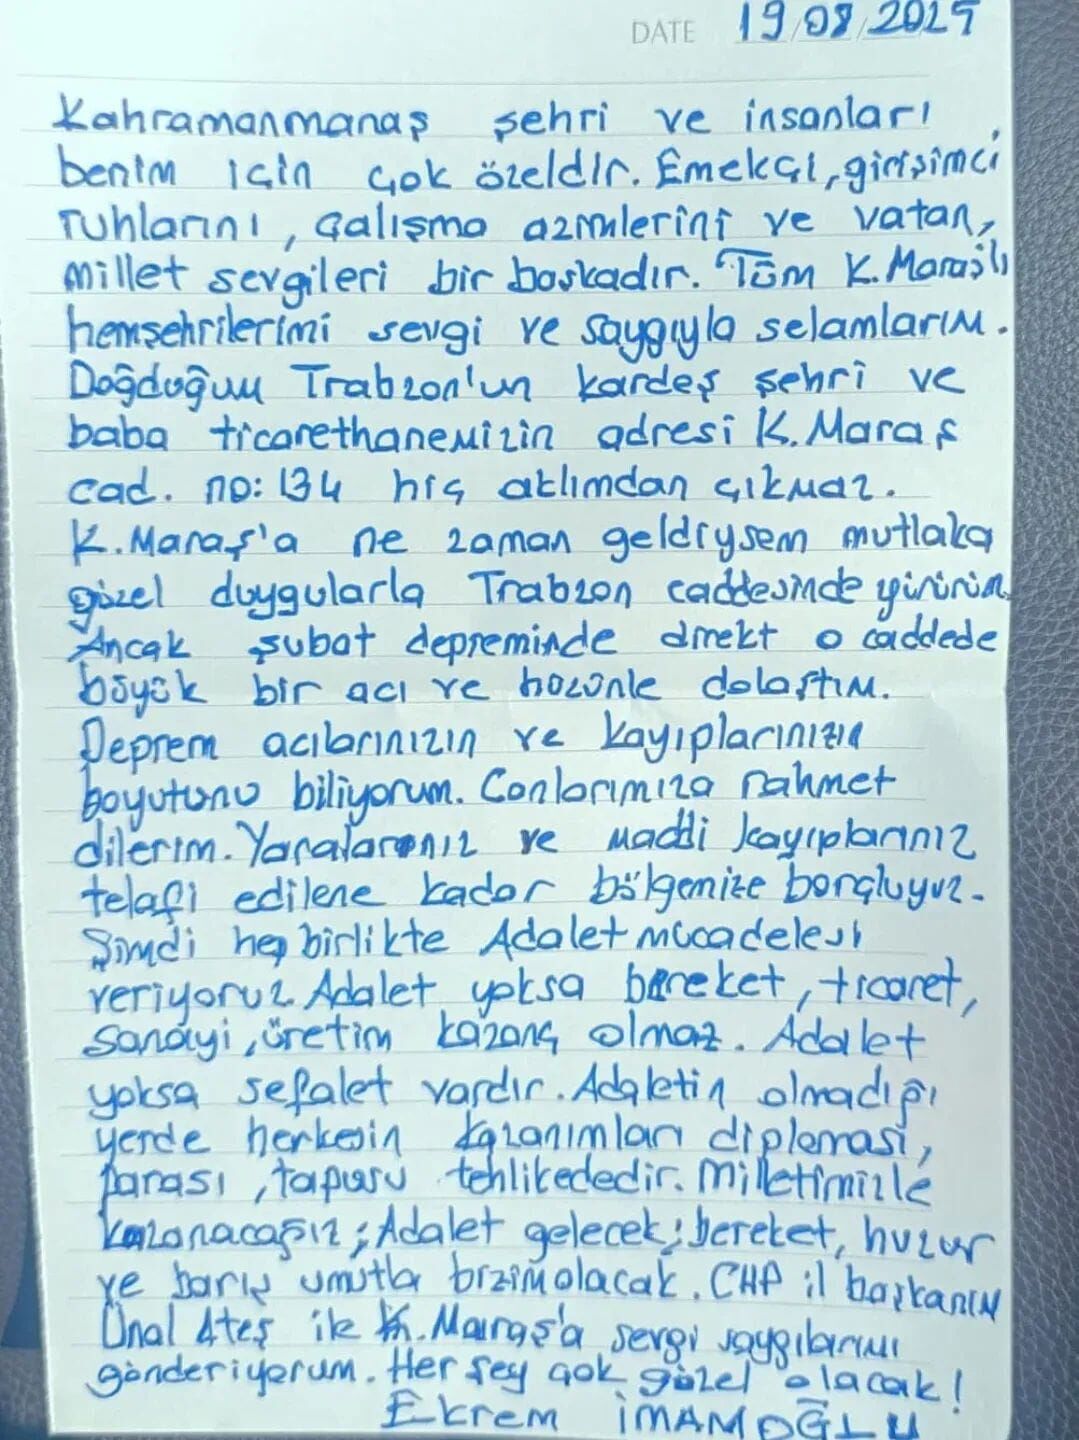 DATE 19/08/2025
Kahramanmaraş şehri ve insanları
benim için çok özeldir. Emekçi, girişimci
ruhlarını, çalışma azimlerini ve vatan,
millet sevgileri bir başkadır. Tüm K.Maraşlı
hemşehrilerimi sevgi ve saygıyla selamlarım.
Doğduğum Trabzon'un kardeş şehri ve
baba ticarethanemizin adresi K.Maraş
cad. no: 134 hiç aklımdan çıkmaz.
K.Maraş'a ne zaman geldiysem mutlaka
güzel duygularla Trabzon caddesinde yürürüm.
Ancak şubat depreminde direkt o caddede
büyük bir acı ve hüzünle dolaştım.
Deprem acılarınızın ve kayıplarınızın
boyutunu biliyorum. Canlarımıza rahmet
dilerim. Yaralarınız ve maddi kayıplarınız
telafi edilene kadar bölgemize borçluyuz.
Şimdi hep birlikte Adalet mücadelesi
veriyoruz Adalet yoksa bereket, ticaret,
sanayi, üretim kazanç olmaz. Adalet
yoksa sefalet vardır. Adaletin olmadığı
yerde herkesin kazanımları diploması,
parası, tapusu tehlikededir. Milletimizle
kazanacağız; Adalet gelecek; bereket, huzur
ve barış umutla bizim olacak. CHP il başkanım
Ünal Ateş ile K.Maraş'a sevgi saygılarımı
gönderiyorum. Her şey çok güzel olacak!
Ekrem İMAMOĞLU